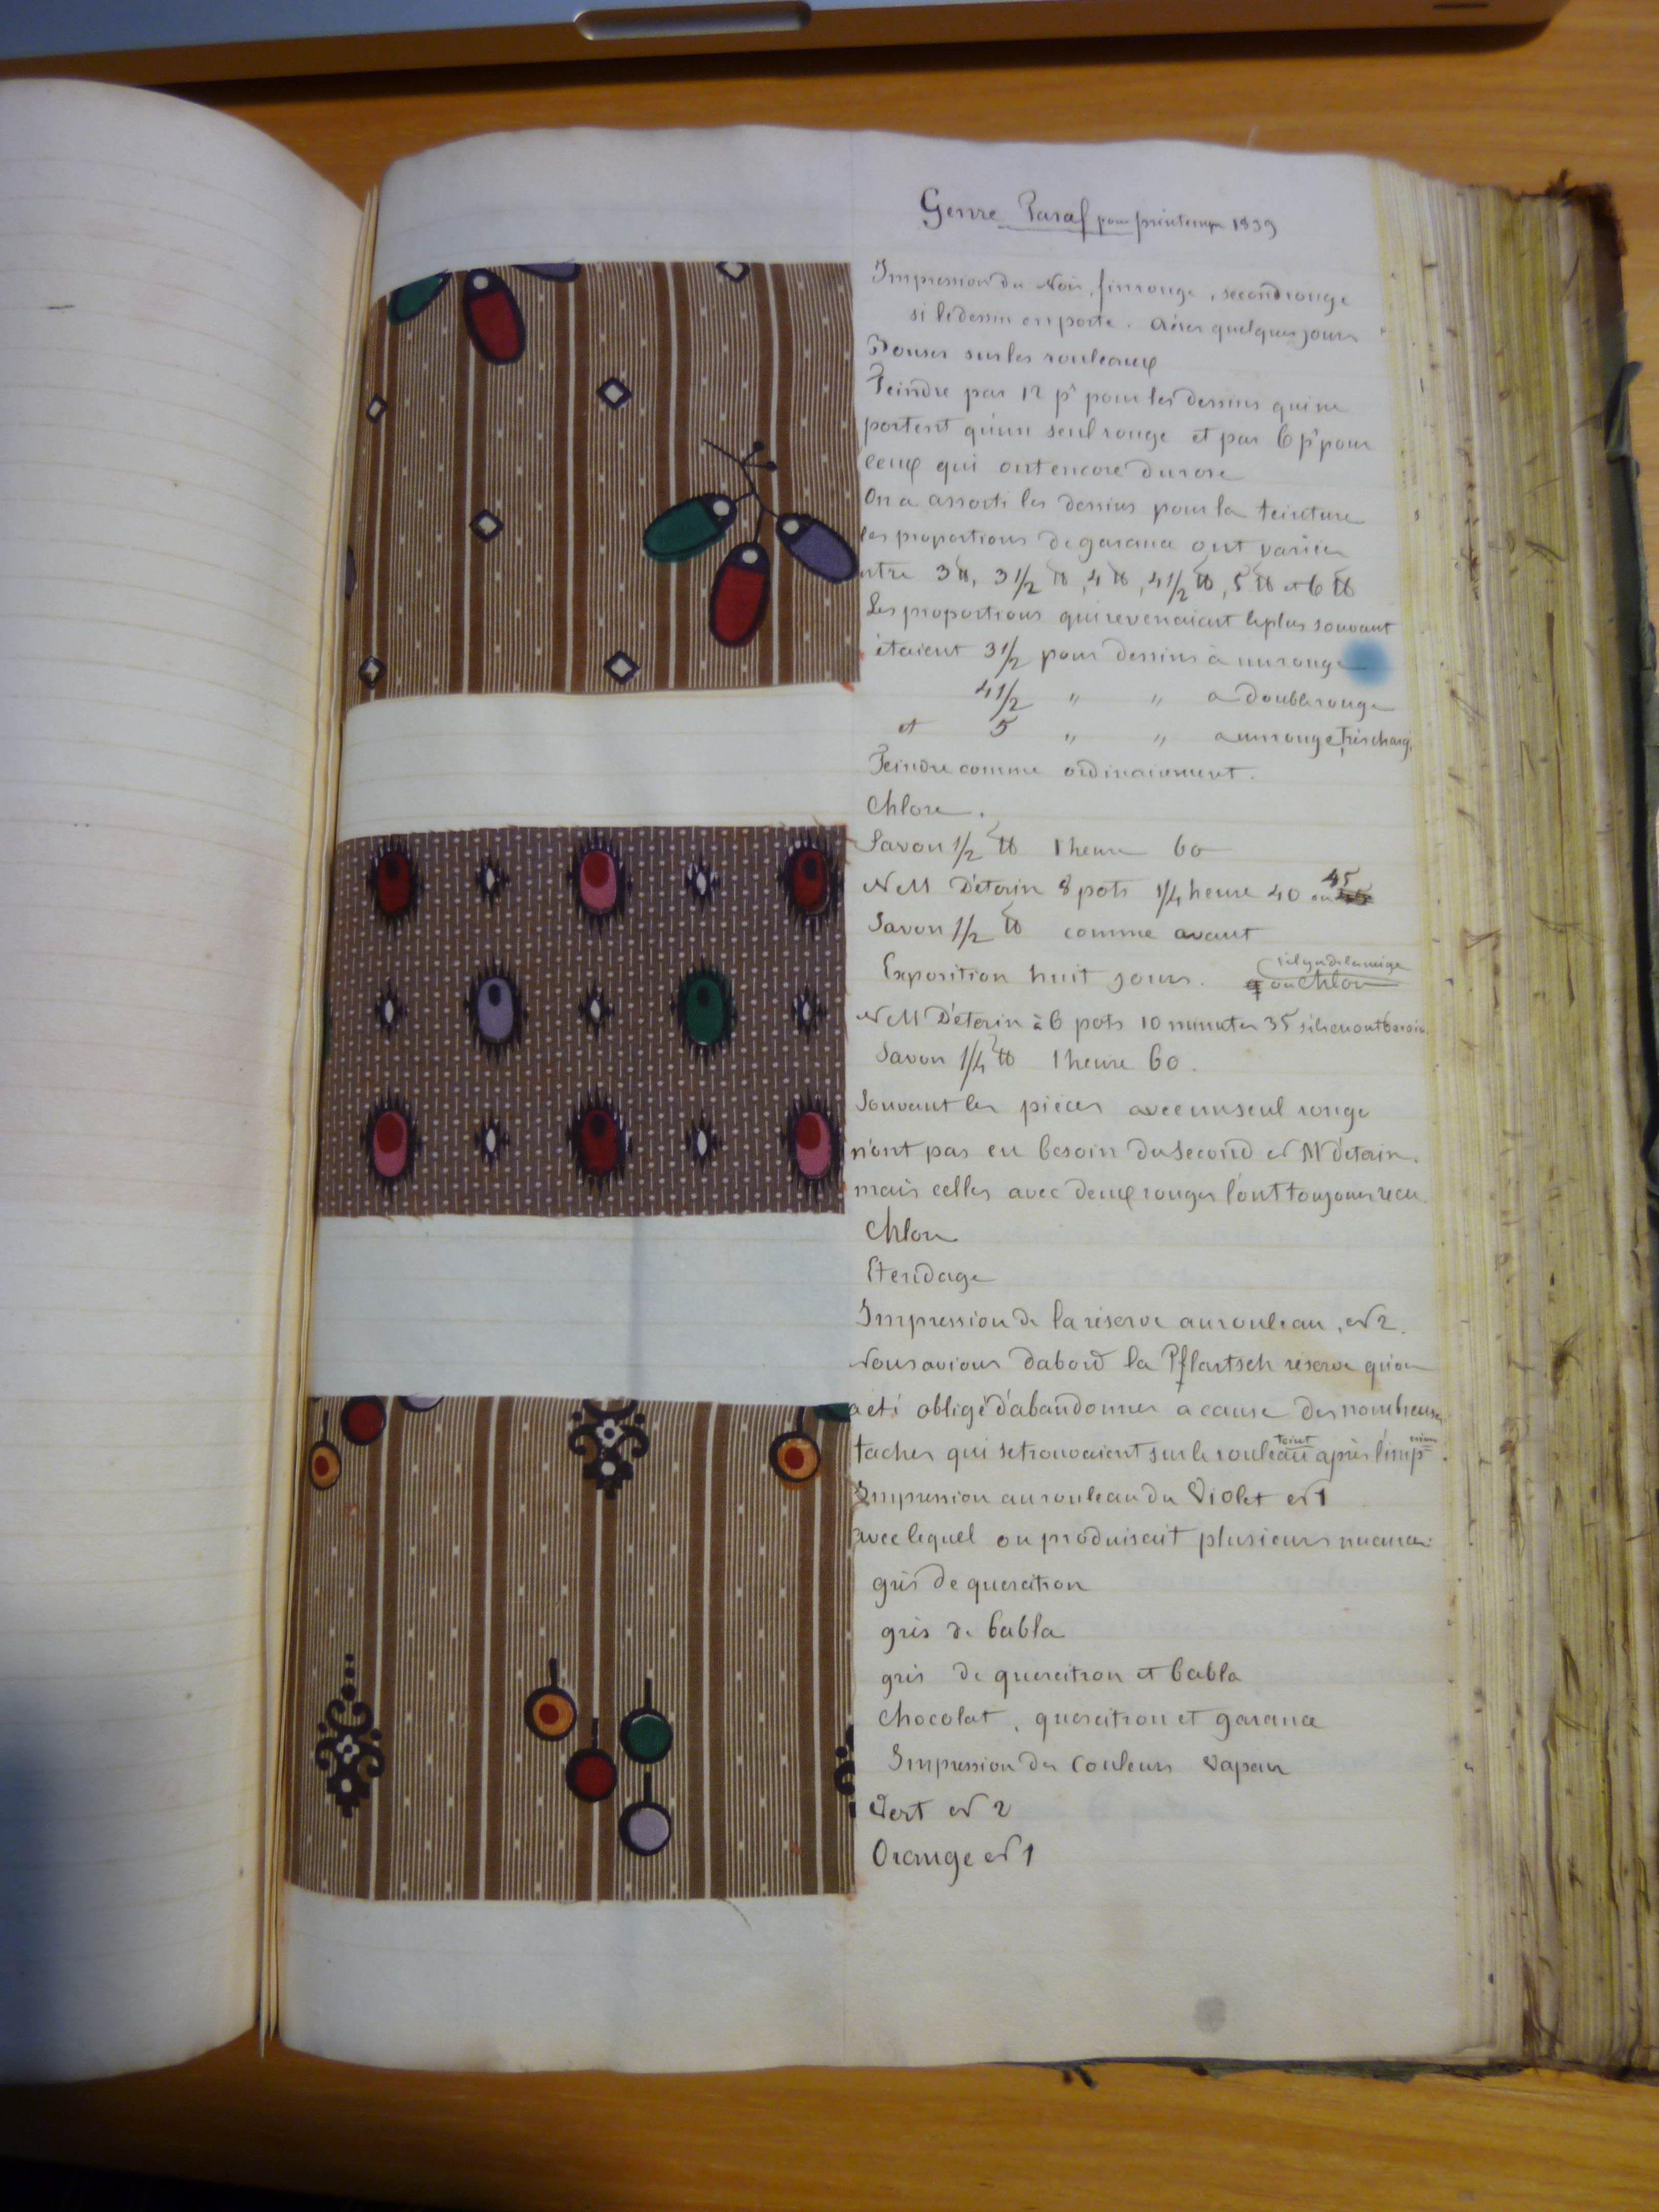 Genre Paraf pour printemps 1839
Impression du Noir, fin rouge, second rouge
si le dessin en porte. Aérer quelques jours
Bouser sur les rouleaux
Teindre par 12 ps pour les dessins qui ne
portent qu'un seul rouge et par 6 ps pour
ceux qui ont encore du rose
On a assorti les dessins pour la teinture
les proportions de garance ont variées
ntre 3 ℔, 3 1/2 ℔, 4 ℔, 4 1/2 ℔, 5 ℔ et 6 ℔
Les proportions qui revenaient le plus souvent
étaient 3 1/2 pour dessins à un rouge
4 1/2 " " a double rouge
et 5 " " a un rouge très chargé
Teindre comme ordinairement.
Chlore.
Savon 1/2 ℔ 1 heure 60
N M D'étain 8 pots 1/4 heure 40 ou 45
Savon 1/2 ℔ comme avant
Exposition huit jours. s'il y a de la neige
ou Chlore
N M D'étain à 6 pots 10 minutes 35 s'ils en ont besoin.
Savon 1/4 ℔ 1 heure 60.
Souvent les pièces avec un seul rouge
n'ont pas eu besoin du second N M d'étain.
mais celles avec deux rouges l'ont toujours reçu
Chlore
Etendage
Impression de la réserve au rouleau, N 2.
Nous avions d'abord la Pflartsch réserve qu'on
a été obligé d'abandonner a cause des nombreuses
taches qui se trouvaient sur le rouleau teint après l'imp ssion.
Impression au rouleau du Violet N 1
avec lequel on produisait plusieurs nuances:
gris de quercitron
gris de babla
gris de quercitron et babla
chocolat, quercitron et garance
Impression des couleurs vapeur
Vert N 2
Orange N 1